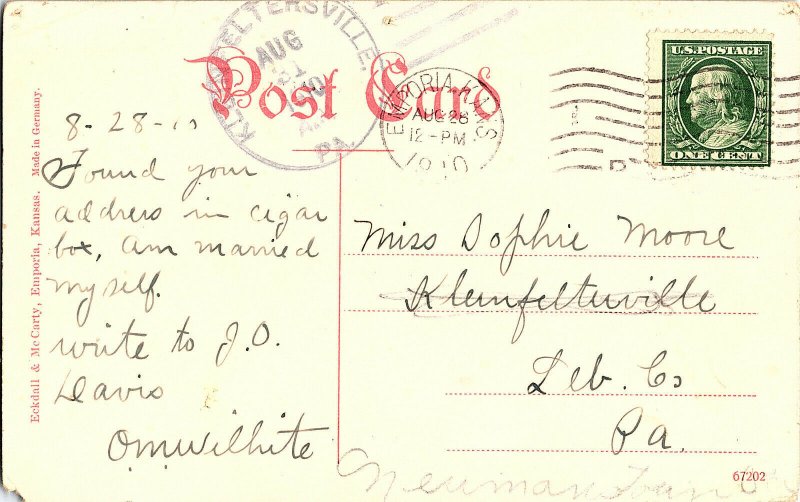 KLEINFELTERSVILLE,
AUG
31
PA.
Post Card
EMPORIA, KANS
AUG 28
12-PM
1910
U.S. POSTAGE
ONE CENT
Eckdall & McCarty, Emporia, Kansas. Made in Germany.
8-28-10
Found your
address in cigar
box, am married
myself.
write to J.O.
Davis
OMWilhite
Miss Sophie Moore
Kleinfeltersville
Leb. Co
Pa.
67202
Neumanstown